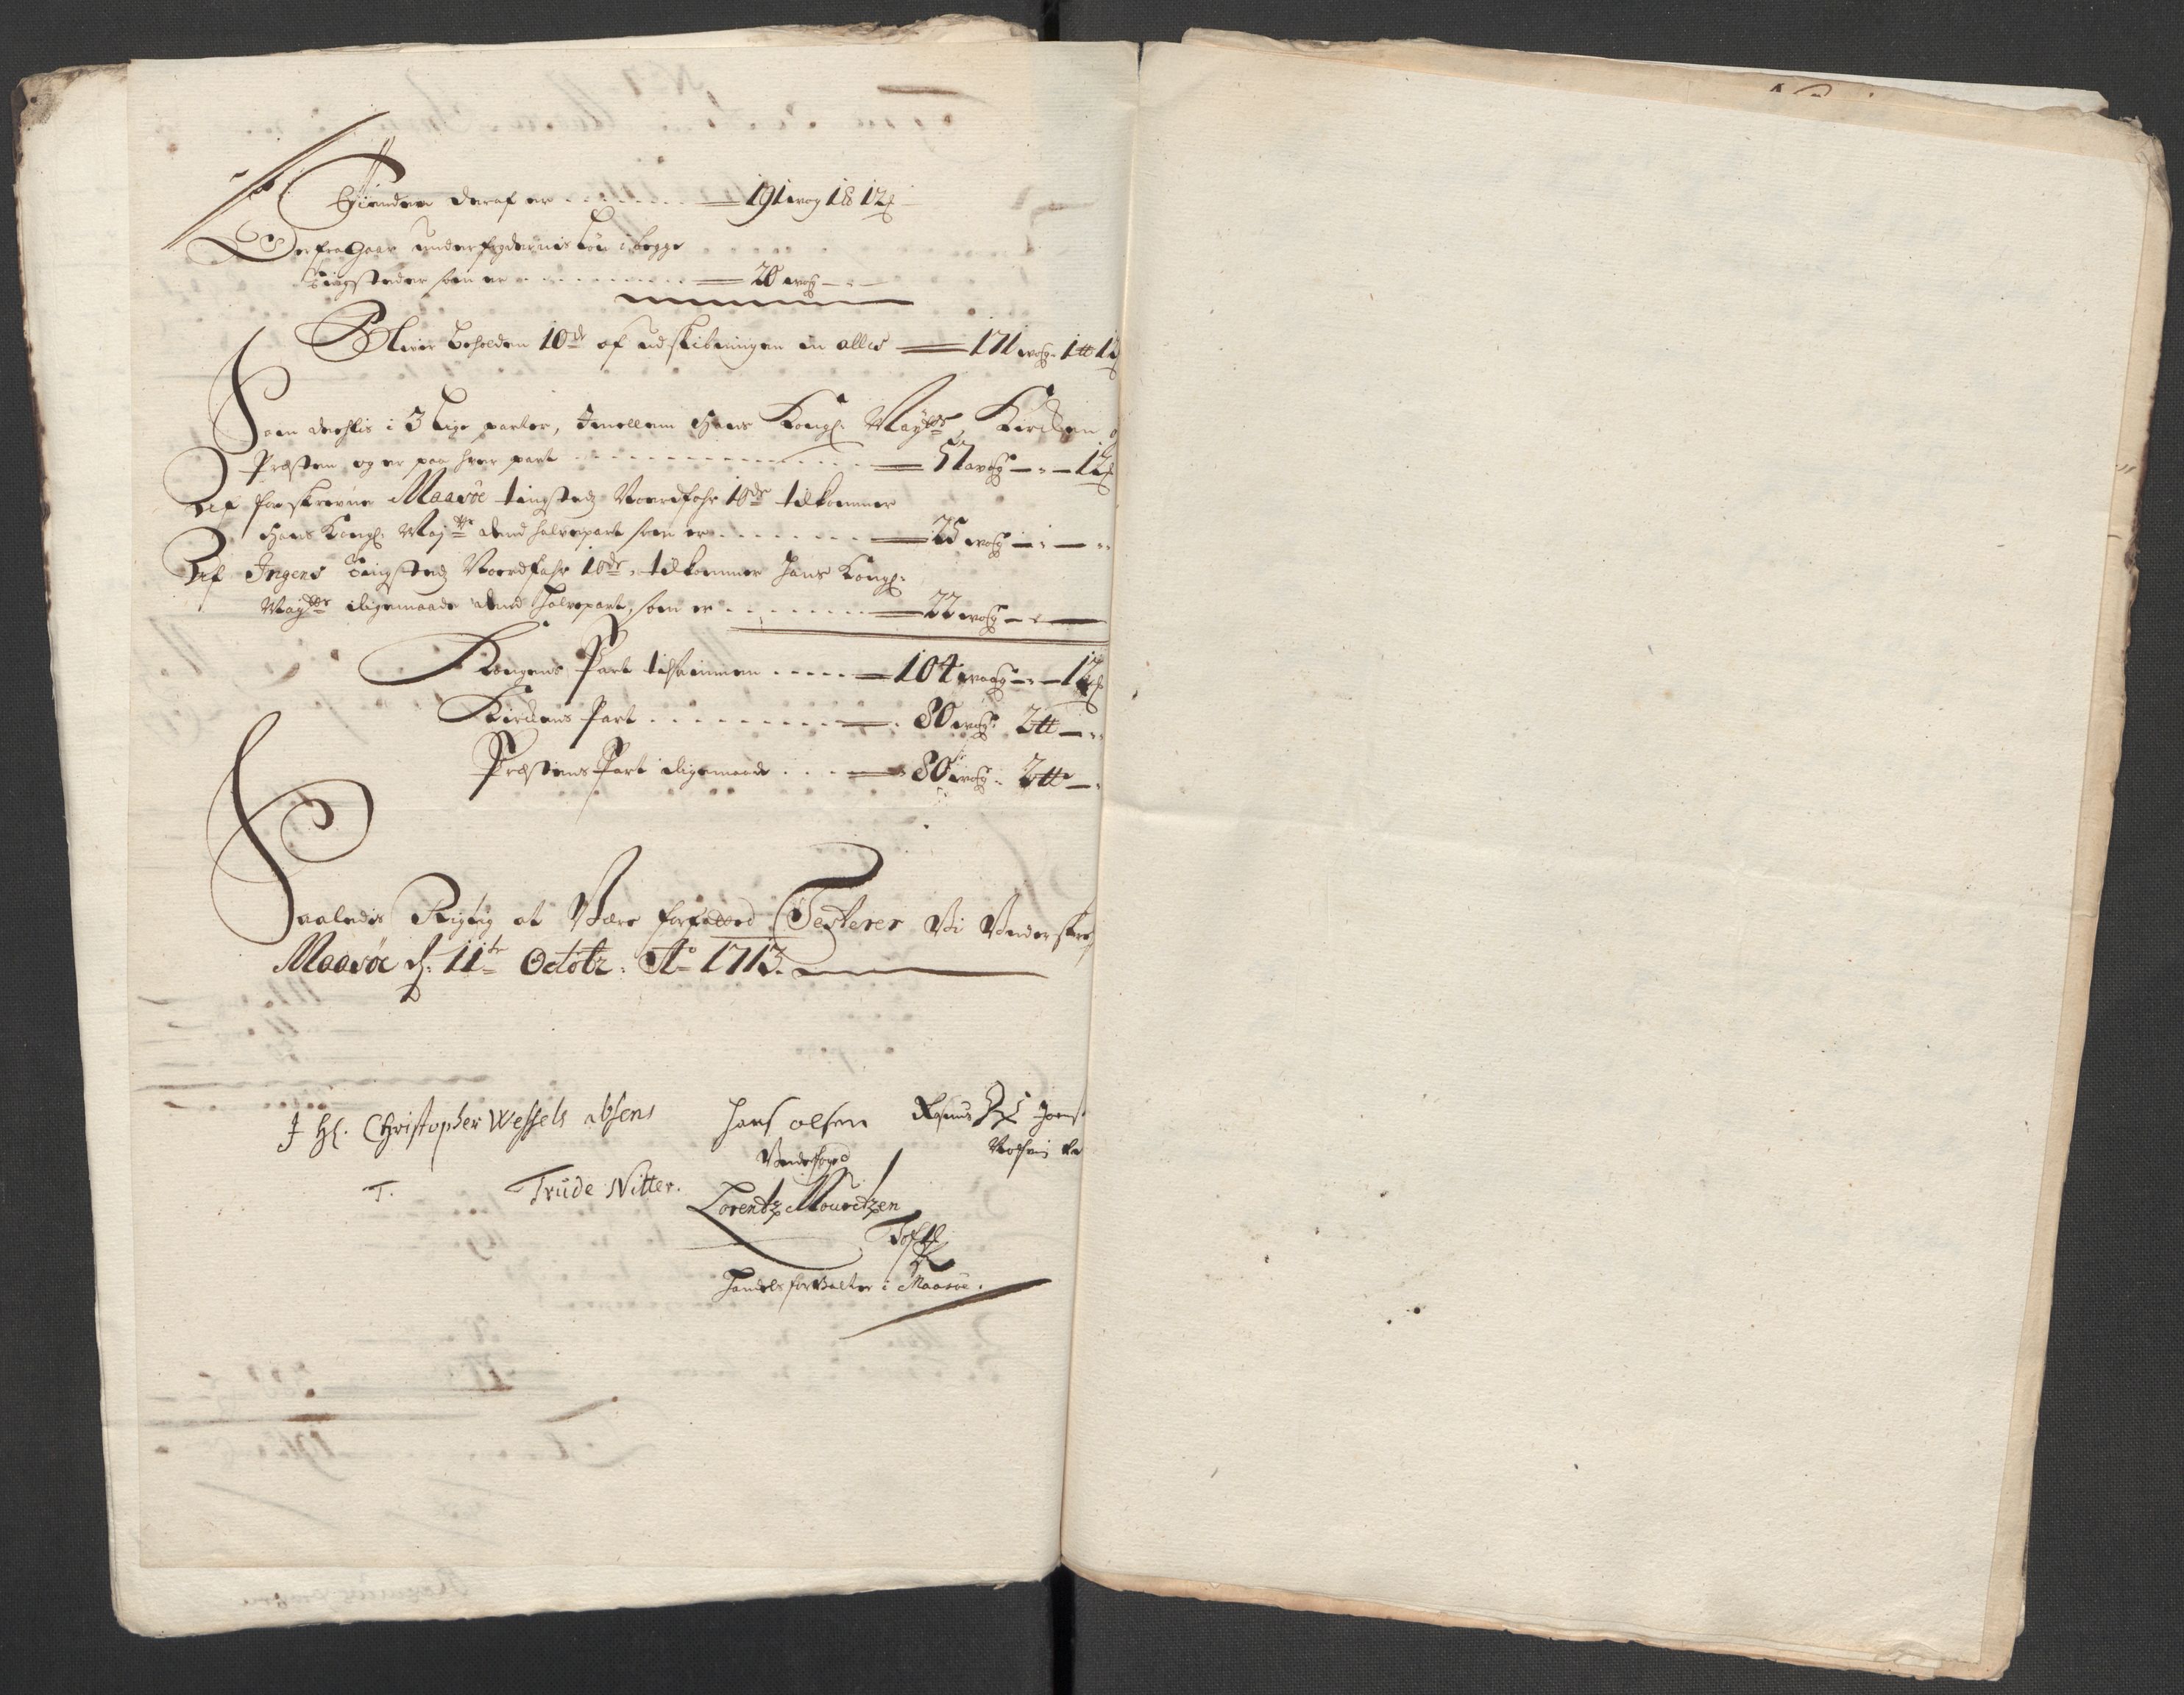 Tienden deraf er 191 wog 1 ℔ 12
Derfra gaar underfogdernis Løn i begge
Tingsteder som er 20 wog
Bliver beholden 10de af udskibningen in alles 171 wog 1 ℔ 12
Som deehlis i 3 Lige parter, Imellem Hans Kongl: Maytts, Kircken
Præsten og er paa hver part 57 wog 12
Af forskrevne Maasöe tingsteds Noerdfahr 10de tilkommer
Hans Kongl: Majtts dend halvepart som er 25 wog
Af Ingens Tingsteds Noerdfahr 10de tilkommer Hans Kongl:
Maytts ligemaade dend halvepart, som er 22 wog
Kongens Part tilsammen 104 wog 12
Kirckens Part 80 wog 2 ℔
Præstens Part ligemaade 80 wog 2 ℔
Saaledis Rigtig at Være forfatted Testerer Vi Underskre
Maasöe d: 11te Octobr: Ao 1713.
I Hl. Christopher Wessels absens
T. Trude Nitter.
Hans olsen
Underfogd
Rasmus Joens
Lorentz Mouritzen
Handels forvalter i Maasöe.